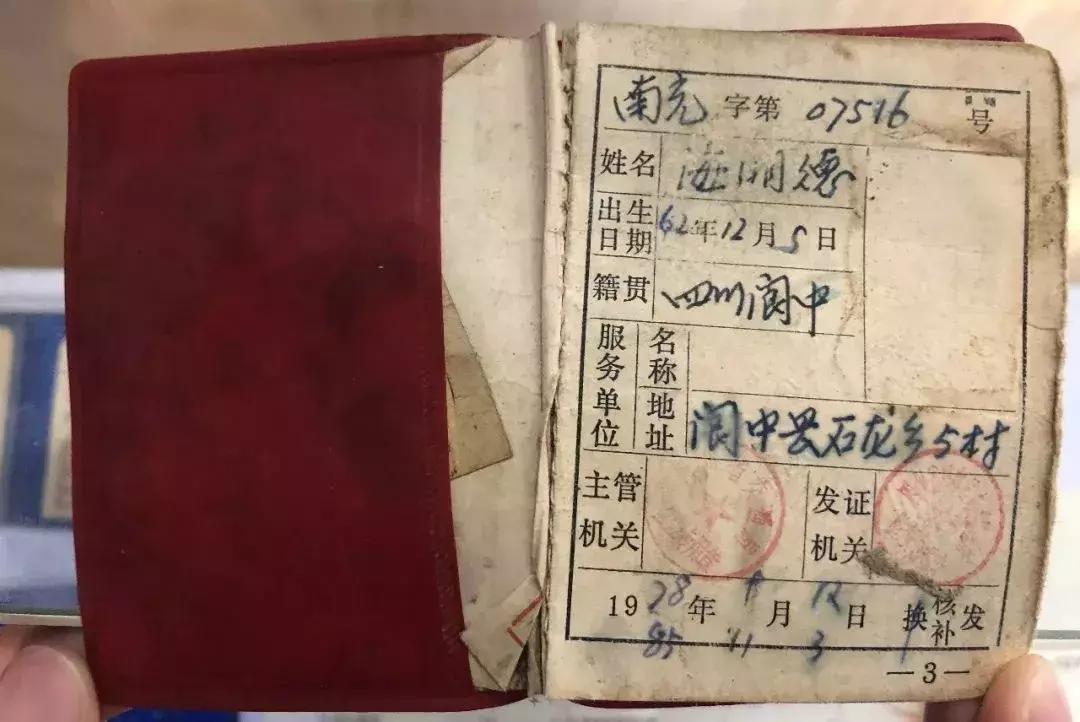 南充 字第 07516 号
姓名 德
出生日期 62年12月5日
籍贯 四川阆中
服务单位
名称
地址 阆中县石龙乡5村
主管机关
发证机关
19 年 月 12 日 换核补发
85 11 3
—3—